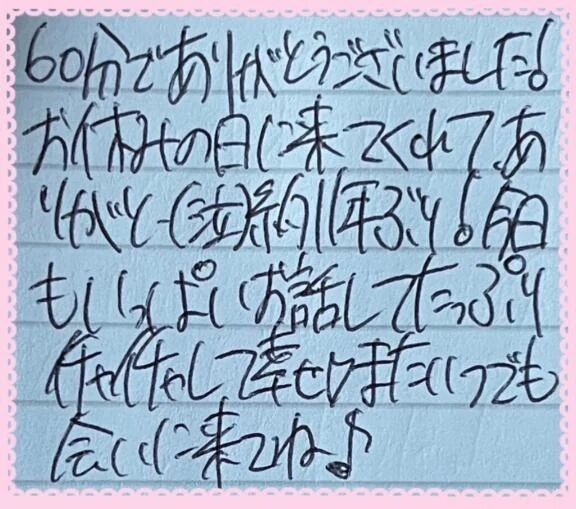 60分でありがとうございました!
お休みの日に来てくれて、あ
りがとー(泣)約1年ぶり!今日
もいっぱいお話してたっぷり
イチャイチャして幸せ♡またいつでも
会いに来てね♪